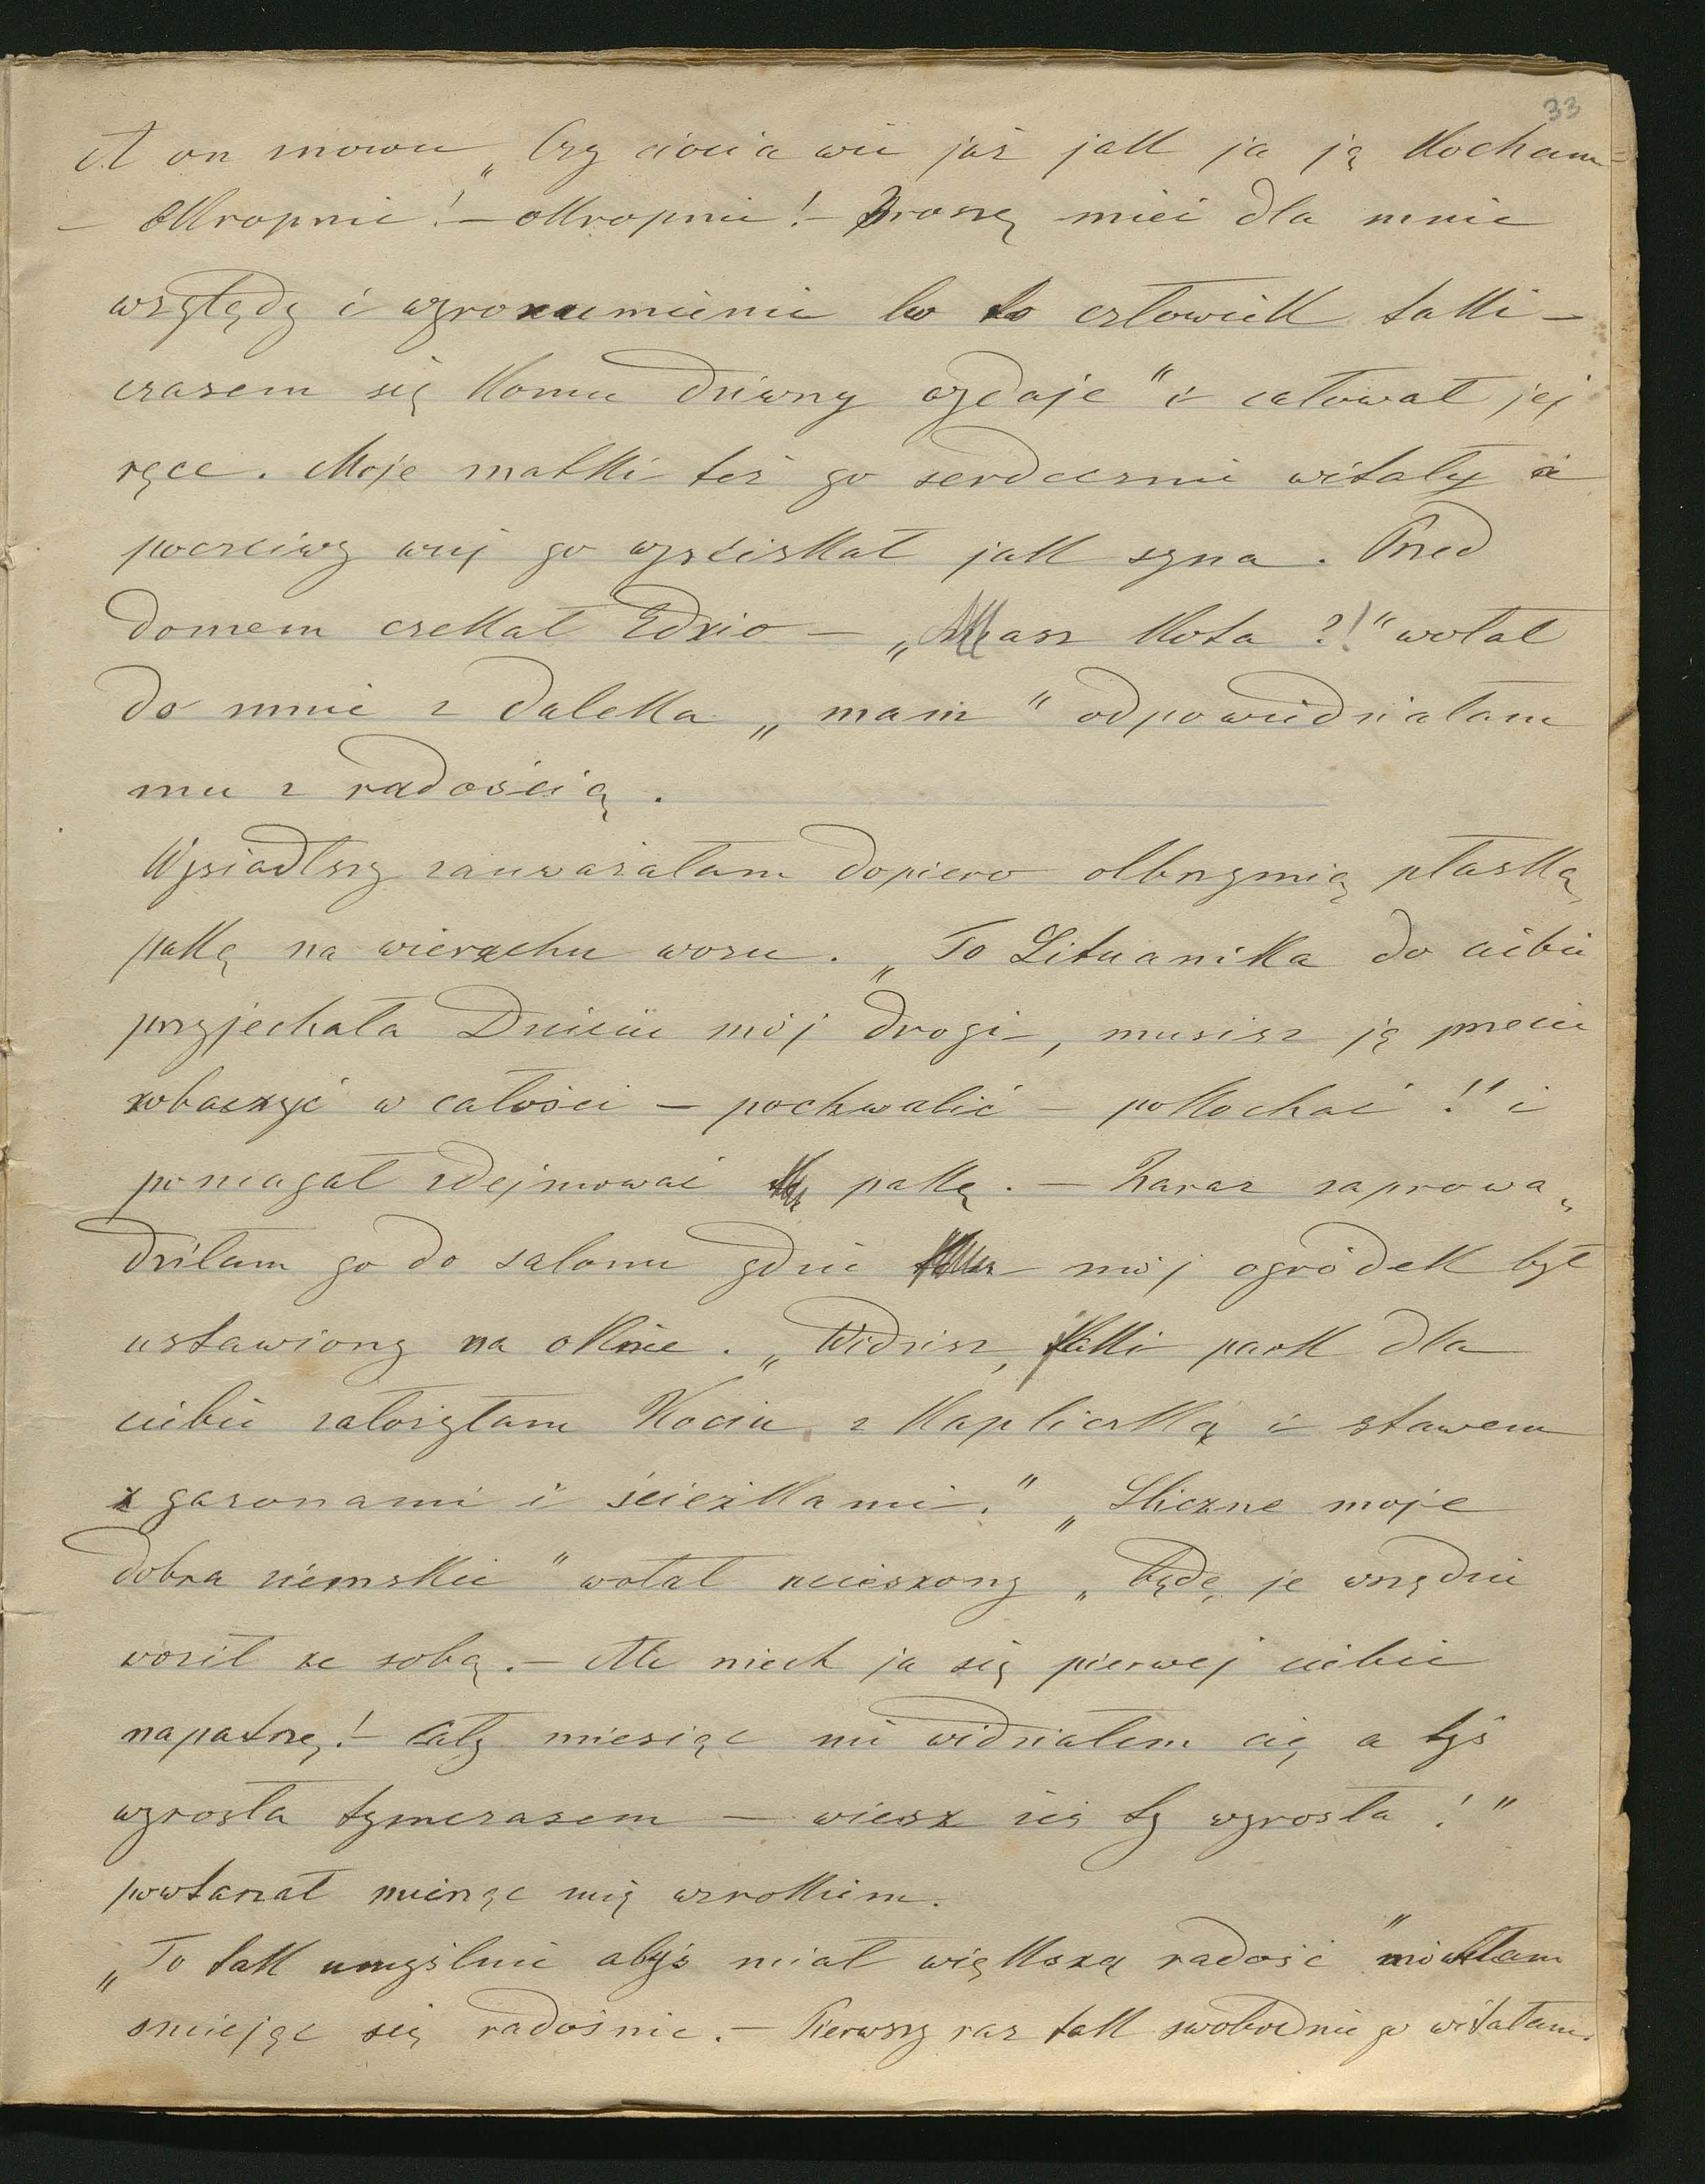 33
A on znowu „Czy ciocia wie już jak ja ją kocham –
– okropnie! – okropnie! – Proszę mieć dla mnie
względy i wyrozumienie bo to człowiek taki –
czasem się komu dziwny wydaje" i całował jej
ręce. Moje matki też go serdecznie witały i
poczciwy wuj go wyściskał jak syna. Przed
domem czekał Edzio – „Masz kota?!" wołał
do mnie z daleka „mam" odpowiedziałam
mu z radością.
Wysiadłszy zauważałam dopiero olbrzymią płaską
pakę na wierzchu wozu. „To Lituanika do ciebie
przyjechała Dziecię mój drogi –, musisz ją przecie
zobaczyć w całości – pochwalić – pokochać!" i
pomagał zdejmować pakę. – Zaraz zaprowa„
dziłam go do salonu gdzie mój ogródek był
ustawiony na oknie. „Widzisz, jaki park dla
ciebie założyłam Kociu, z kapliczką i stawem
z gazonami i ścieżkami." „Śliczne moje
dobra ziemskie" wołał ucieszony „będę je wszędzie
woził ze sobą. – Ale niech ja się pierwej ciebie
napatrzę! – Cały miesiąc nie widziałem cię a tyś
wyrosła tymczasem – wiesz żeś ty wyrosła!"
powtarzał mierząc mię wzrokiem.
„To tak umyślnie abyś miał większą radość" mówiłam
śmiejąc się radośnie. – Pierwszy raz tak swobodnie go witałam.